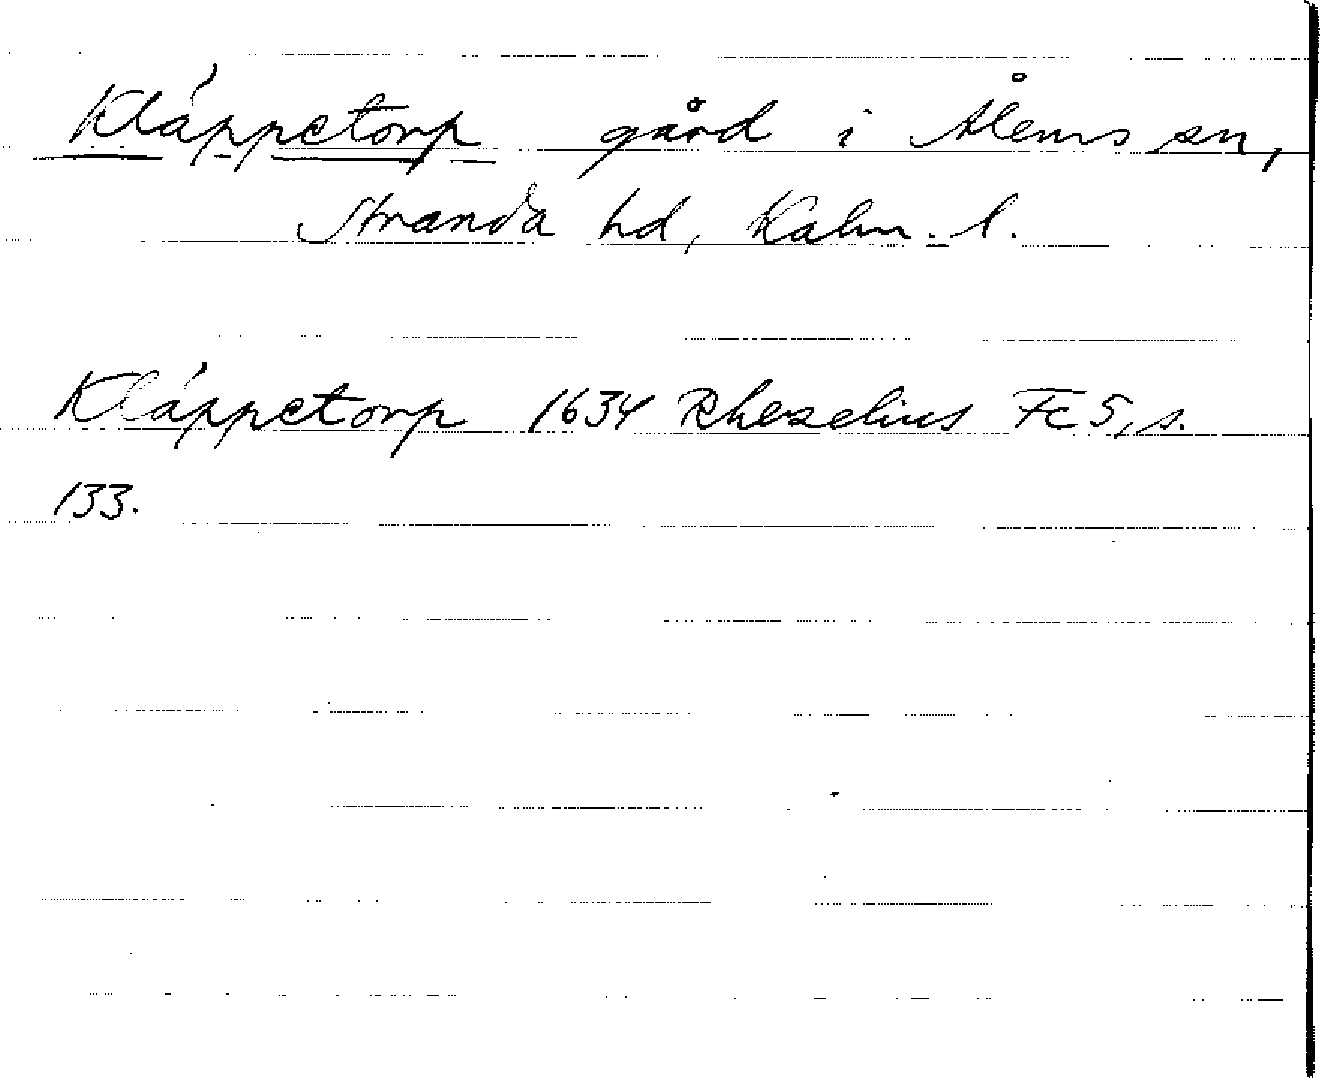 Kláppetorp gård i Ålems sn,
Stranda hd, Kalm. l.
Kláppetorp 1634 Rhezelius Fc 5, s.
133.